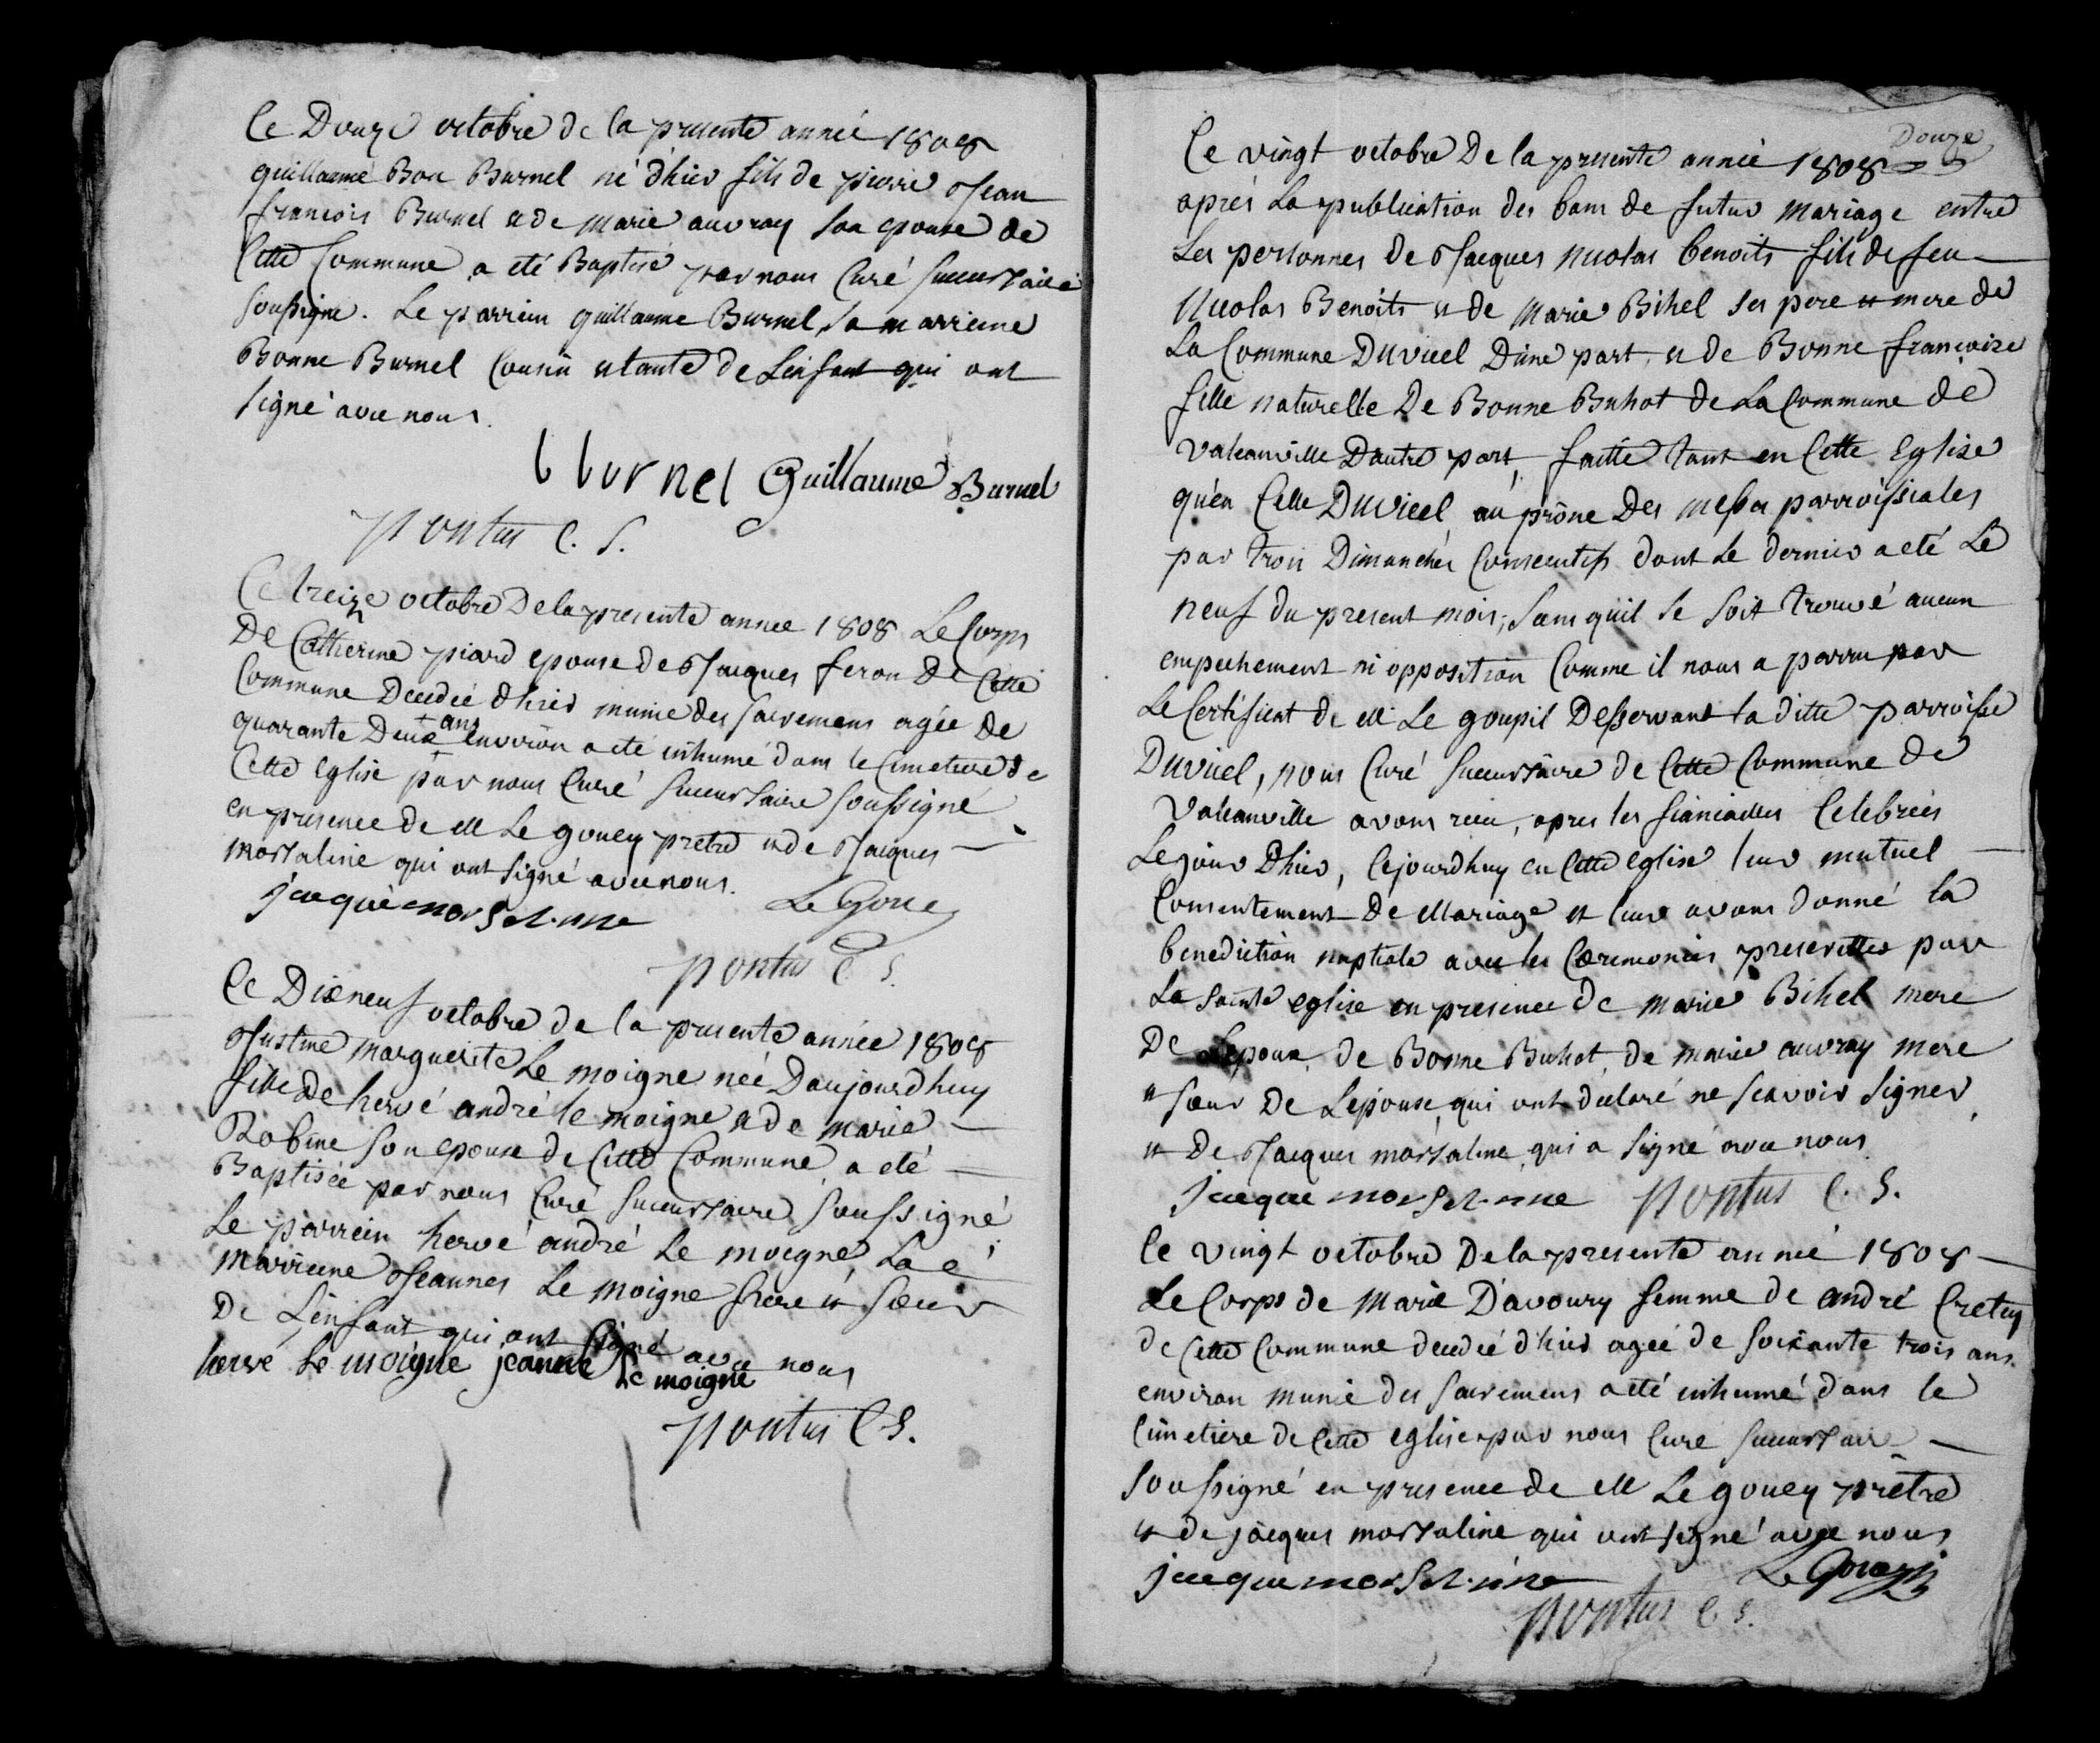 Ce Douze octobre de la presente année 1808
guillaume Bon Burnel né d'hier fils de pierre Jean
françois Burnel et de Marie auvray son epouse de
Cette Commune a eté Baptisé par nous Curé succursaire
soussigné. Le parrein guillaume Burnel, la marreine
Bonne Burnel Cousin et tante de L'enfant qui ont
signé avec nous.
burnel Guillaume Burnel
Pontus C. S.
Ce treize octobre De la presente année 1808 Le Corps
De Catherine piard epouse de Jacques feron De Cette
Commune Decedée d'hier munie des sacremens agée de
quarante Deux ans environ a eté inhumé dans le Cimetiere de
Cette eglise par nous Curé succursaire soussigné
en presence de M Le gouey prêtre et de Jacques
morsaline qui ont signé avec nous.
jacque morsaline Le Gouey
Pontus C. S.
Ce Dixneuf octobre de la presente année 1808
Justine marguerite Le moigne née Daujourdhuy
fille de hervé andré le moigne et de marie
Robine son epouse de Cette Commune a eté
Baptisée par nous Curé succursaire soussigné
Le parrein hervé andré Le moigne, La
marreine Jeannes Le moigne frere et sœur
De L'enfant qui ont signé avec nous
hervé Le moigne jeanne Le moigne
Pontus C. S.
Douze
Ce vingt octobre De la presente année 1808
après La publication des bans de futur mariage entre
Les personnes de Jacques nicolas benoits fils de feu
Nicolas Benoits et de Marie Bihel ses pere et mere de
La Commune Duvicel D'une part, et de Bonne françoise
fille naturelle De Bonne Buhot de La Commune de
Valcanville Dautre part, faitte tant en Cette Eglise
qu'en Celle Duvicel au prône Des messes parroissiales
par trois Dimanches Consecutifs dont Le dernier a eté Le
neuf du present mois; sans qu'il se soit trouvé aucun
empechement ni opposition Comme il nous a parru par
Le Certificat de M Le goupil Desservant la ditte parroisse
Duvicel, nous Curé succursaire de Cette Commune de
Valcanville avons reçu, apres les fiancailles Celebrées
Le jour D'hier, Cejourdhuy en Cette eglise leur mutuel
Consentement De Mariage et leur avons donné la
benediction nuptiale avec les Cæremonies prescrittes par
La sainte eglise en presence de marie Bihel mere
De Lepoux, de Bonne Buhot, de marie auvray mere
et sœur De Lepouse, qui ont declaré ne scavoir signer,
et De Jacques morsaline, qui a signé avec nous
jacque morsaline Pontus C. S.
le vingt octobre De la presente année 1808
Le Corps de Marie D'avoury femme de andré Cretey
de Cette Commune decedée d'hier agée de soixante trois ans
environ munie des sacremens a eté inhumé dans le
Cimetiere de Cette eglise par nous Curé succursaire
soussigné en presence de M Le gouey prêtre
et de jacques morsaline qui ont signé avec nous
jacque morsaline Le Gouey
Pontus C. S.